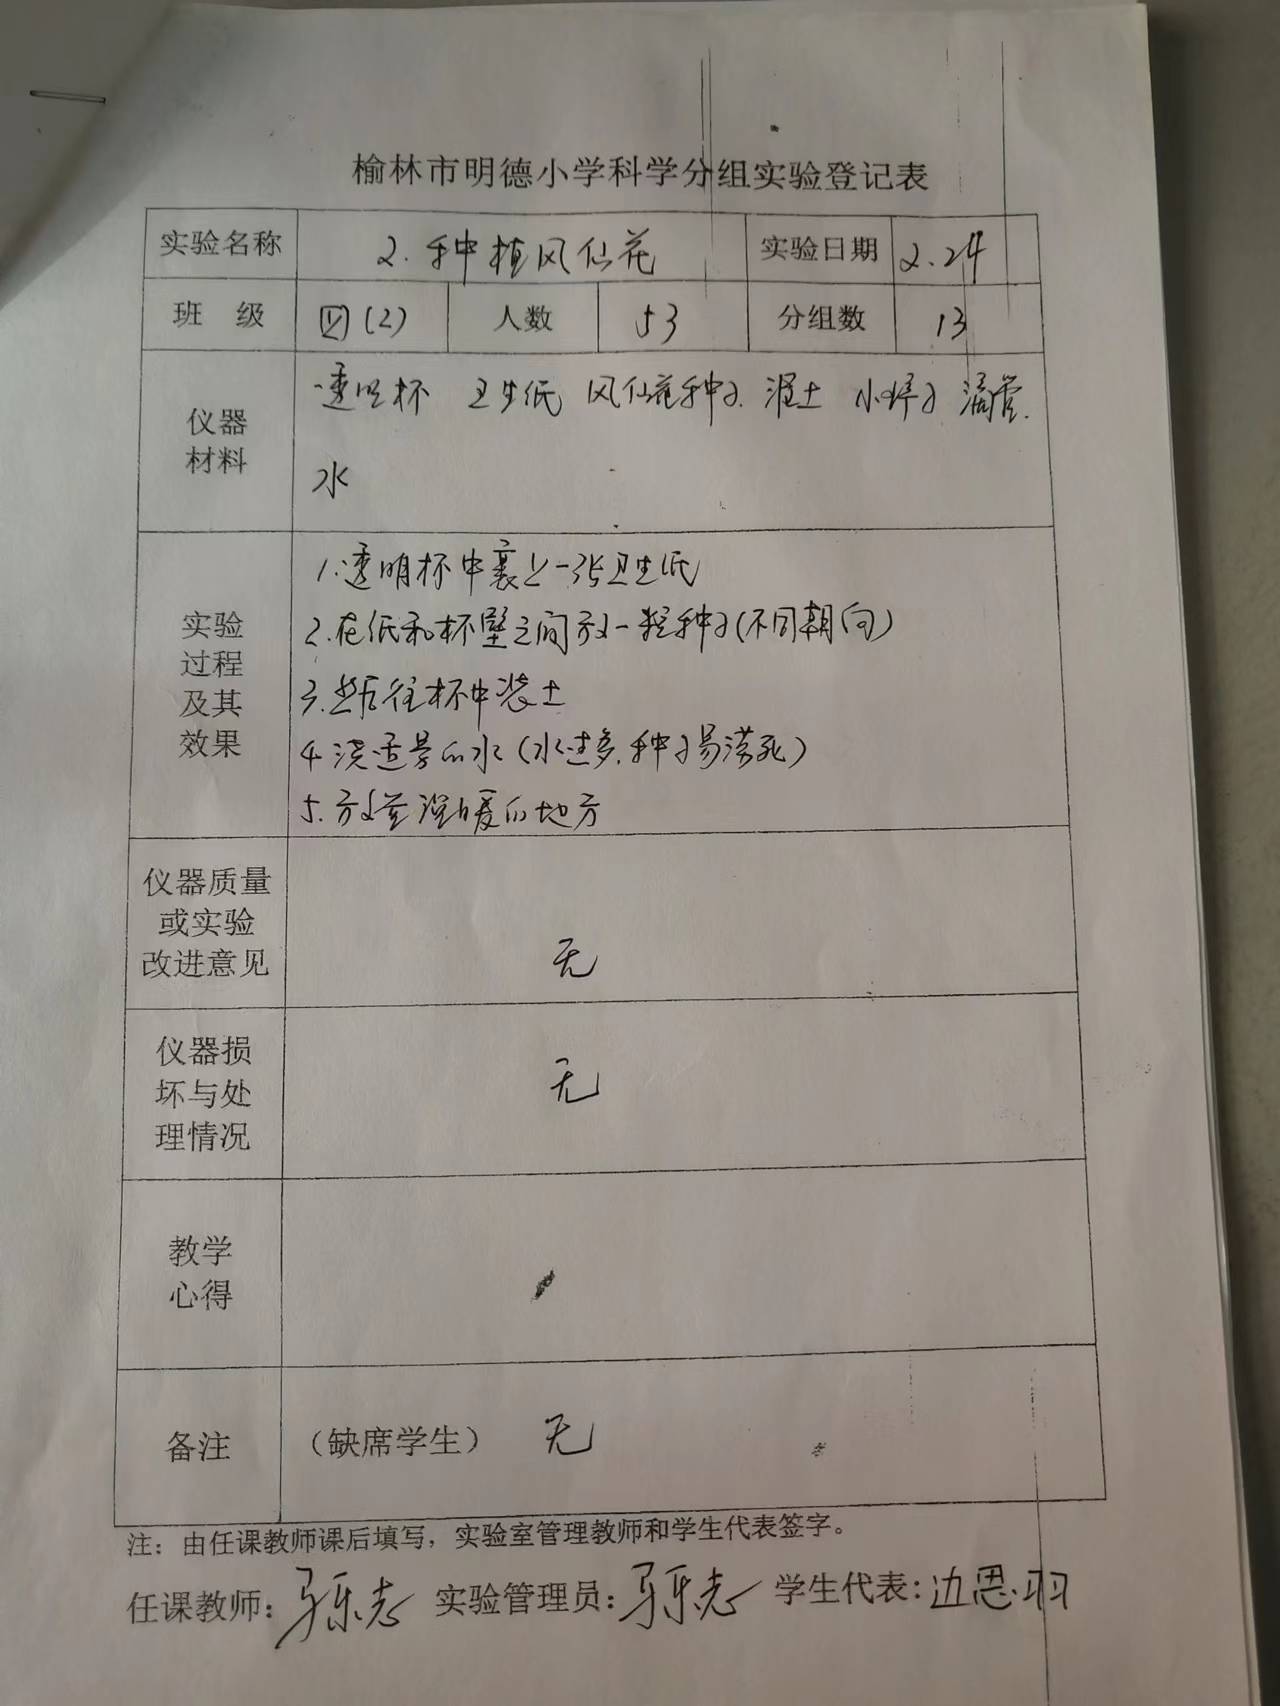 榆林市明德小学科学分组实验登记表
实验名称 2.种植风仙花 实验日期 2.24
班 级 四(2) 人数 53 分组数 13
仪器材料
透明杯 卫生纸 风仙花种子 湿土 小铲子 滴管
水
实验过程及其效果
1.透明杯中裹上一张卫生纸
2.在纸和杯壁之间放一粒种子(不同朝向)
3.然后往杯中装土
4.浇适量的水(水过多,种子易涝死)
5.放在温暖的地方
仪器质量或实验改进意见 无
仪器损坏与处理情况 无
教学心得
备注 (缺席学生) 无
注：由任课教师课后填写，实验室管理教师和学生代表签字。
任课教师: 马乐志 实验管理员: 马乐志 学生代表: 边思羽